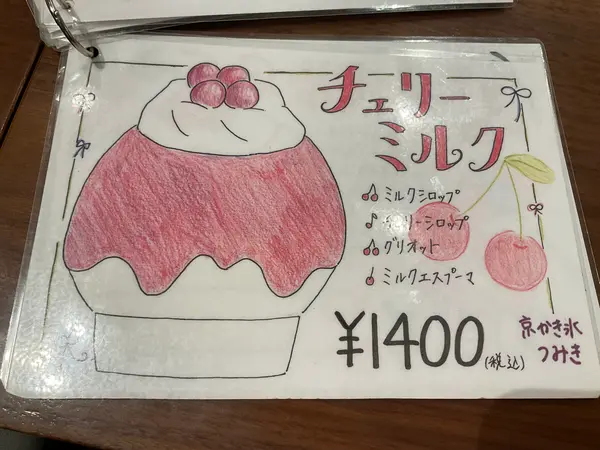 チェリー
ミルク
ミルクシロップ
チェリーシロップ
グリオット
ミルクエスプーマ
¥1400(税込)
京かき氷
つみき